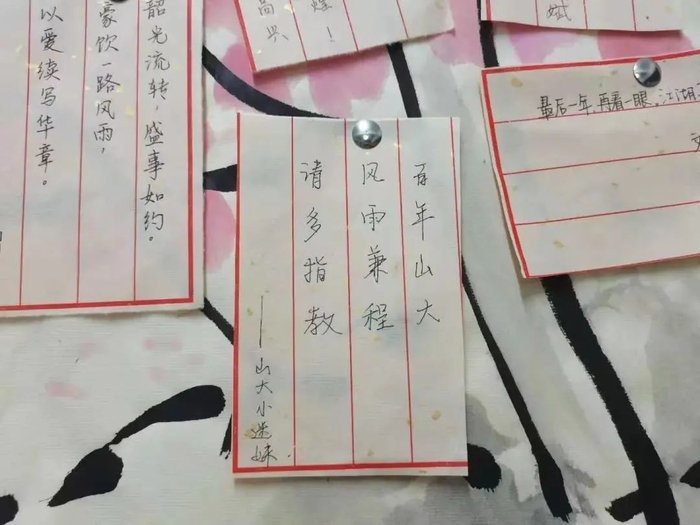 韶光流转，盛事如约。
豪饮一路风雨，
以爱续写华章。
煌！
高兴
百年山大
风雨兼程
请多指教
——山大小迷妹.
最后一年，再看一眼，江湖